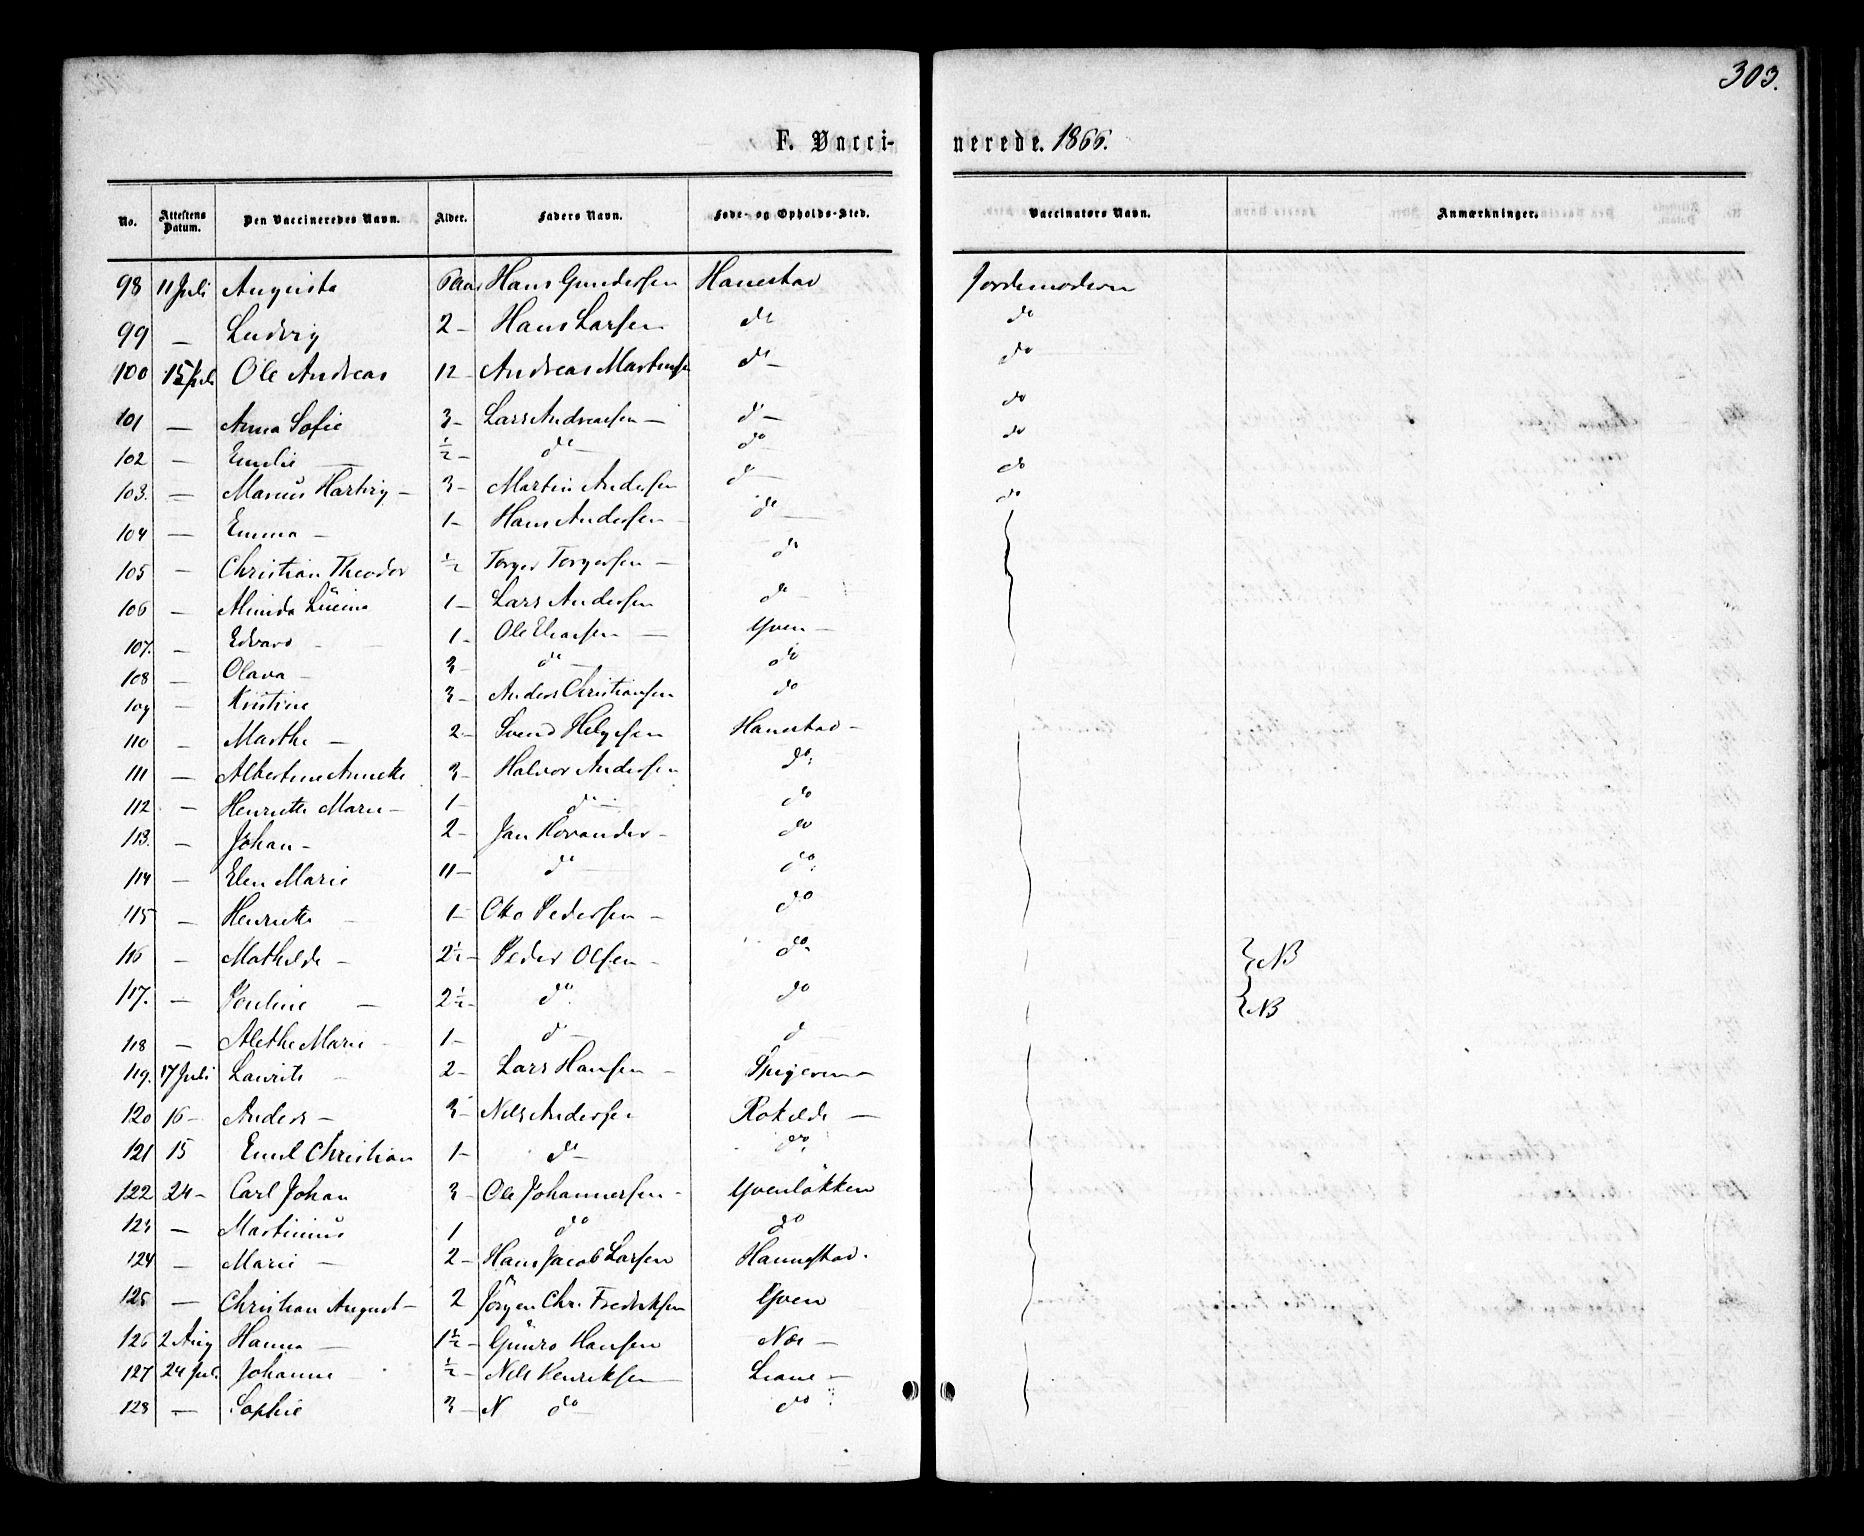 303.
F. Vacci- nerede. 1866.
No. Attestens Datum. Den Vaccineredes Navn. Alder. Faders Navn. Føde- og Opholds-Sted. Vaccinators Navn. Anmærkninger.
98 11 Juli Augusta 6 Aar Hans Gundersen Hanestad Jordemoderen
99 — Ludvig 2 — Hans Larsen do do
100 15 Juli Ole Andreas 12 Andreas Martinsen do — do
101 — Anna Sofie 3 — Lars Andreasen — do — do
102 — Emilie — 1/2 — do — do — do
103. — Marius Hartvig — 3 — Martin Andersen do — do
104 — Emma — 1 — Hans Andersen — do — do
105 — Christian Theodor 1/2 Torger Torgersen — do
106 — Minda Lücina 1 — Lars Andersen do —
107. — Edvard — 1 — Ole Eliasen — Yven —
108 — Olava — 3 — do — do
109 — Kristine 3 — Anders Christiansen do
110 — Marthe — 2 — Svend Helgesen Hanestad —
111 — Albertine Annette 3 — Halvor Andersen do
112 — Henriette Marie — 1 — do — do
113. — Johan — 2 — Jan Horander — do
114 — Elen Marie 11 — do — do
115 — Henriette — 1 — Otto Pedersen — do
116 — Mathilde — 2 1/2 — Peder Olsen — do NB
117. — Pouline — 2 1/2 — do do NB
118 — Alethe Marie — 1 — do — do
119. 17 Juli Laurits — 2 — Lars Hansen — —
120 16 — Anders — 3 — Nils Andersen Rokilde —
121 15 Emil Christian 1 — do — do
122 24 — Carl Johan 3 — Ole Johannesen — Yvenløkken
123 — Martinius 1 do do
124 — Marie — 2 — Hans Jacob Larsen Hannestad.
125 — Christian August — 2 Jörgen Chr. Fredriksen Yven
126 2 Aug Hanna — 1 1/2 — Gunro Hansen Næs —
127 24 Juli Johanne — 1/2 — Nils Henriksen — Liane —
128 — Sophie 3 — N do — do